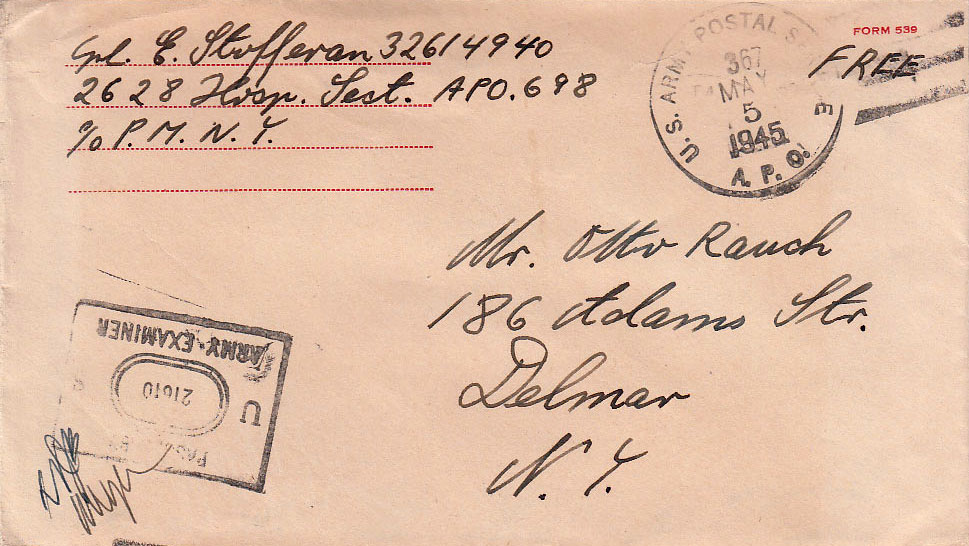 Cpl. E. Stofferan 32614940
2628 Hosp. Sect. APO. 698
c/o P. M. N. Y.
U.S. ARMY POSTAL SERVICE
367
MAY
5
1945
A. P. O.
FORM 539
FREE
Mr. Otto Rauch
186 Adams Str.
Delmar
N. Y.
PASSED BY
U S
21610
ARMY EXAMINER